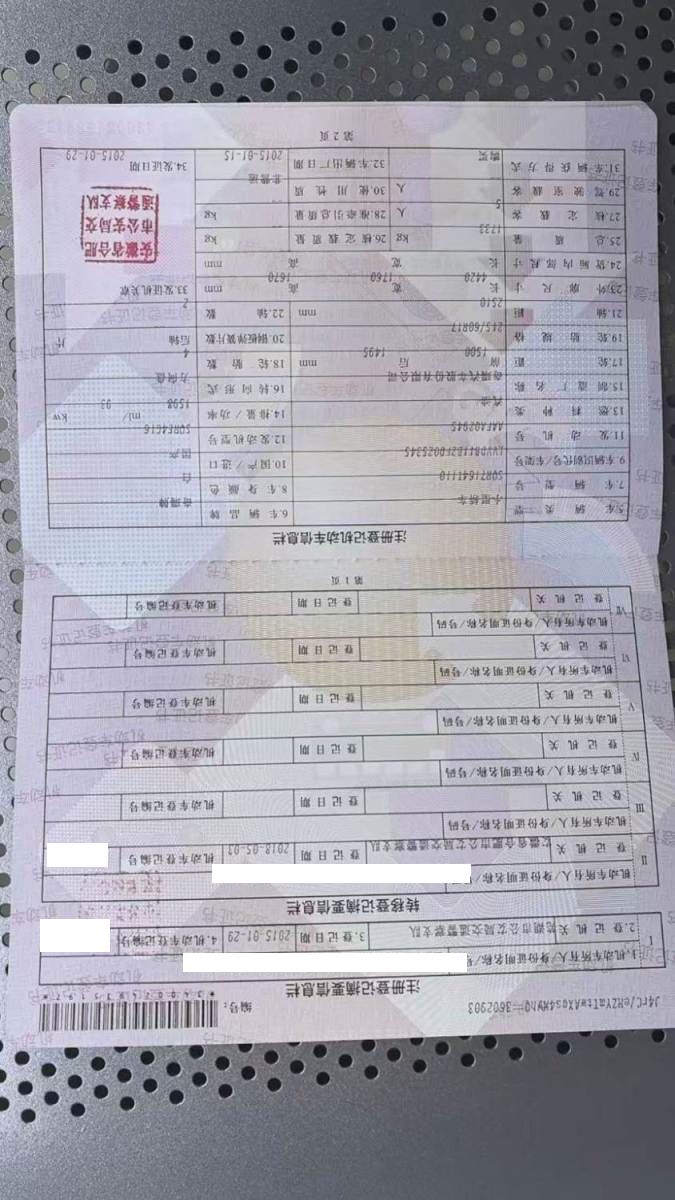 J4fC/eHZYaTtwAXos4MWhQ==3602903
编号:
注册登记摘要信息栏
I
1.机动车所有人/身份证明名称/号码
2.登记机关 芜湖市公安局交通警察支队 3.登记日期 2015-01-29 4.机动车登记编号
转移登记摘要信息栏
II
机动车所有人/身份证明名称/号码
登记机关 安徽省合肥市公安局交通警察支队 登记日期 2018-05-03 机动车登记编号
III
机动车所有人/身份证明名称/号码
登记机关 登记日期 机动车登记编号
IV
机动车所有人/身份证明名称/号码
登记机关 登记日期 机动车登记编号
V
机动车所有人/身份证明名称/号码
登记机关 登记日期 机动车登记编号
VI
机动车所有人/身份证明名称/号码
登记机关 登记日期 机动车登记编号
VII
机动车所有人/身份证明名称/号码
登记机关 登记日期 机动车登记编号
第1页
注册登记机动车信息栏
5.车辆类型 小型轿车 6.车辆品牌 奇瑞牌
7.车辆型号 8.车身颜色 白
9.车辆识别代号/车架号 10.国产/进口 国产
11.发动机号 12.发动机型号 SQRE4G16
13.燃料种类 汽油 14.排量/功率 1598 ml/ 93 kw
15.制造厂名称 奇瑞汽车股份有限公司 16.转向形式 方向盘
17.轮距 前 1500 后 1495 mm 18.轮胎数 4
19.轮胎规格 215/60R17 20.钢板弹簧片数 后轴 片
21.轴距 2510 mm 22.轴数 2
23.外廓尺寸 长 4420 宽 1760 高 1670 mm 33.发证机关章
24.货厢内部尺寸 长 宽 高 mm
25.总质量 1733 kg 26.核定载质量 kg
27.核定载客 5 人 28.准牵引总质量 kg
29.驾驶室载客 人 30.使用性质 非营运
31.车辆获得方式 购买 32.车辆出厂日期 2015-01-15 34.发证日期 2015-01-29
安徽省合肥
市公安局交
通警察支队
第2页